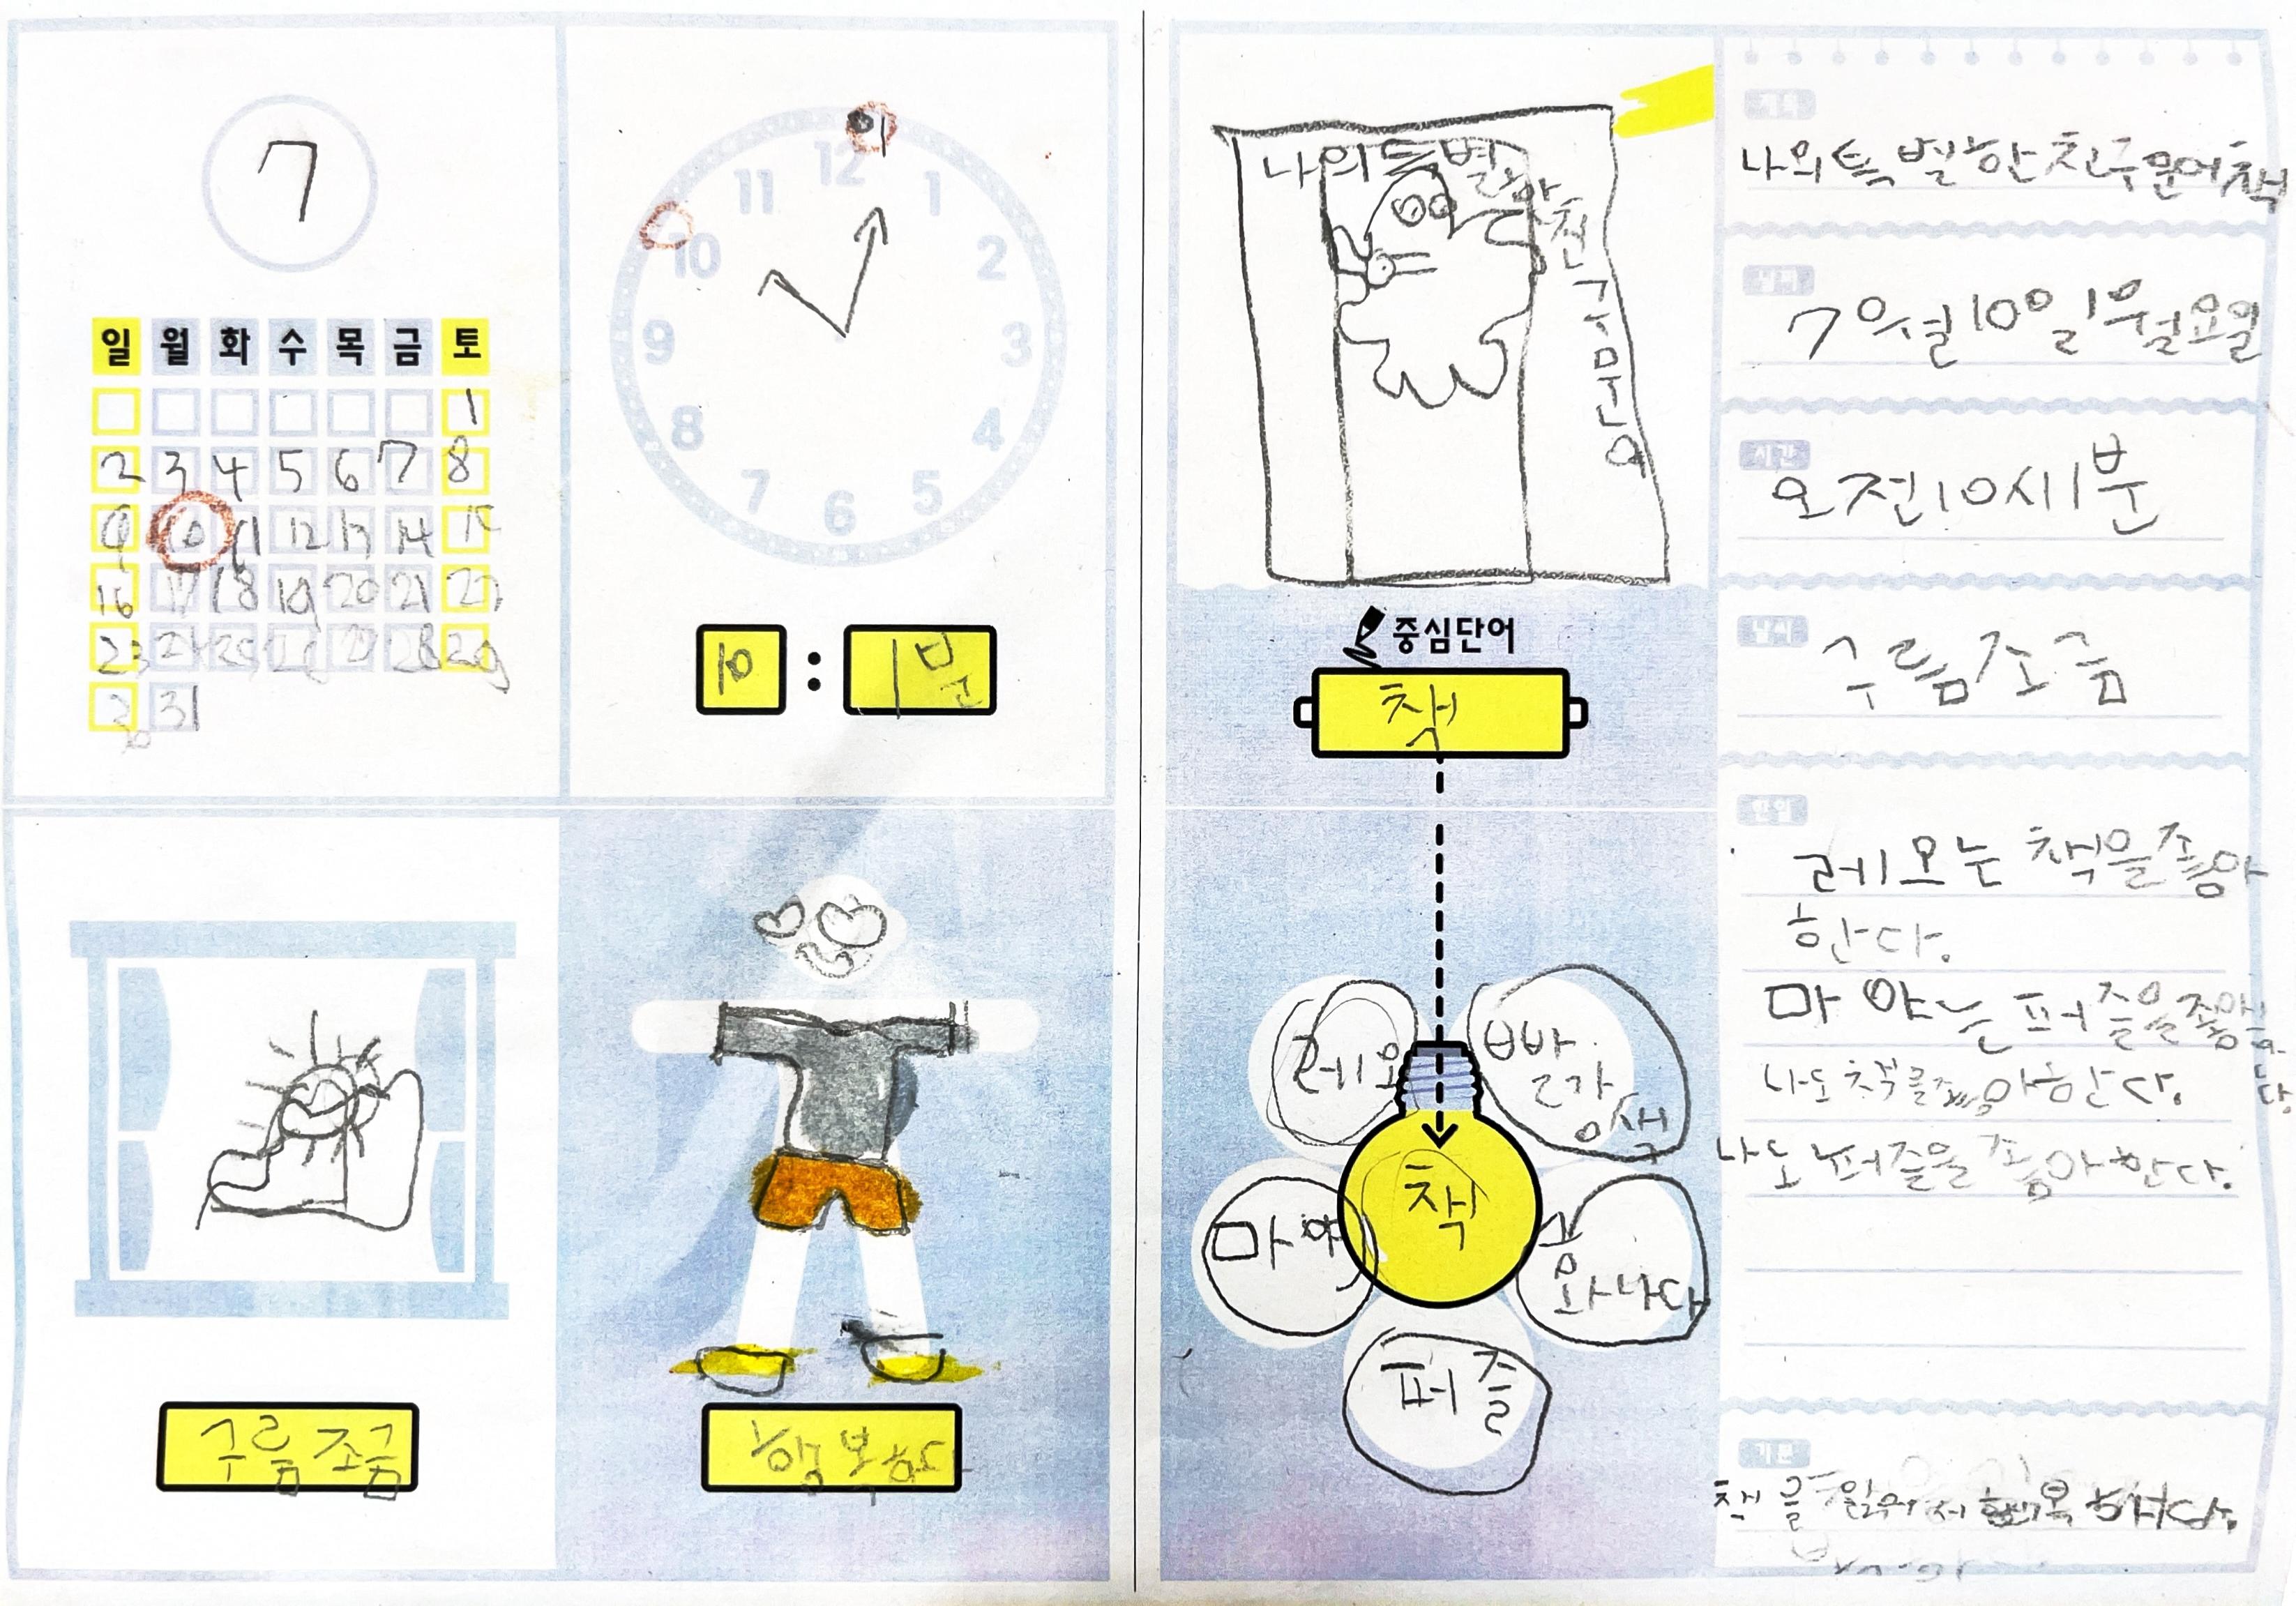 7
일 월 화 수 목 금 토
1
2 3 4 5 6 7 8
9 10 11 12 13 14 15
16 17 18 19 20 21 22
23 24 25 26 27 28 29
30 31
12
11 1
10 2
9 3
8 4
7 5
6
10 : 1분
구름조금
행복하다
나의특별한친구문어
중심단어
책
레오
빨간색
마야
책
소중하다
퍼즐
제목
나의특별한친구문어책
날짜
7월10일월요일
시간
오전10시1분
날씨
구름조금
한일
레오는 책을좋아
한다.
마야는 퍼즐을좋아한다.
나도책를좋아한다.
나도퍼즐을좋아한다.
기분
책를읽어서행복했다.